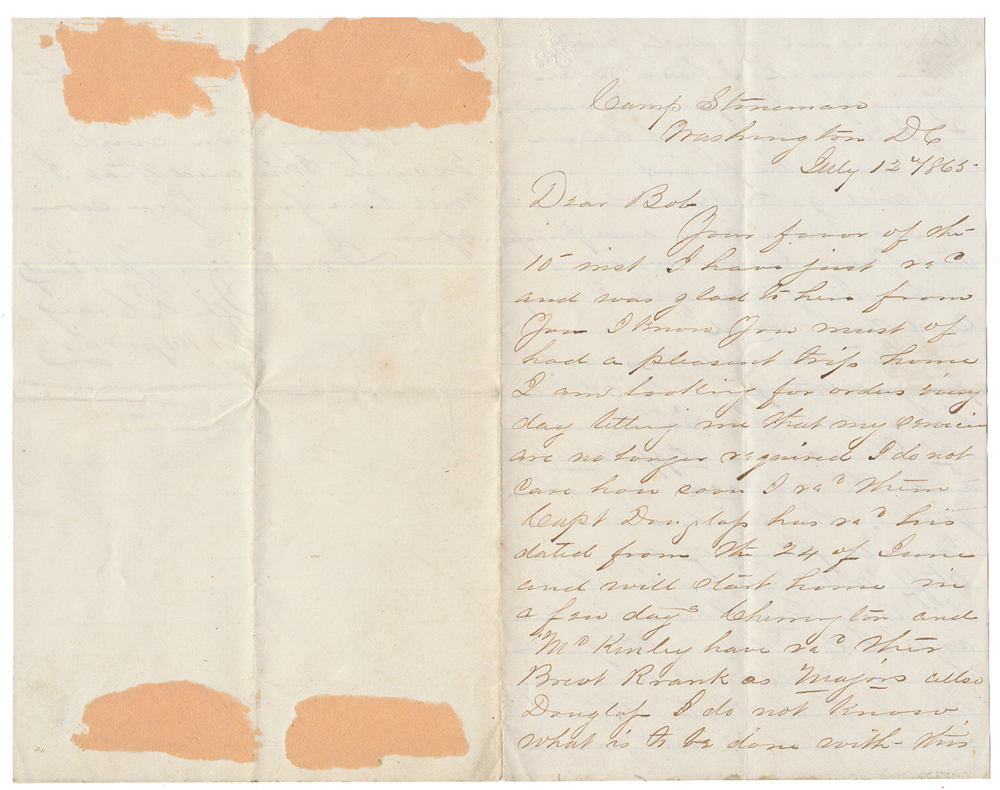 Camp Stoneman
Washington DC
July 12th/1865
Dear Bob
Your favor of the
10 inst I have just recd
and was glad to here from
You I know You must of
had a pleasent trip home
I am looking for orders every
day telling me that my services
are no longer required I do not
Care how soon I recd them
Capt Douglass has recd his
dated from the 24 of June
and will start home in
a few days Cherrington and
McKinley have recd ther
Brevt Rrank as Majors allso
Douglass I do not know
what is to be done with this